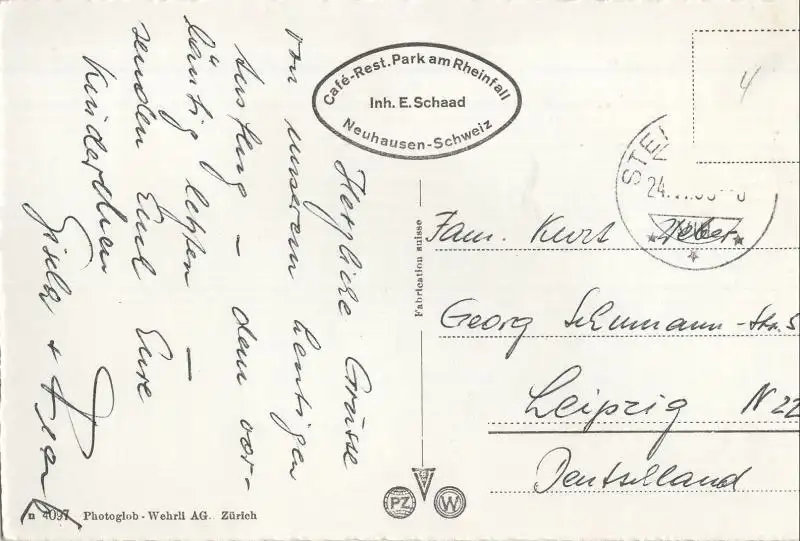 Herzliche Grüsse
von unserem heutigen
Ausflug – dem vor-
läufig letzten –
senden Euch Eure
Kinderchen
Gisela + Frank
Café-Rest. Park am Rheinfall
Inh. E. Schaad
Neuhausen-Schweiz
4
STE
24.
Fabrication suisse
Fam. Kurt Weber
Georg Schumann-Str. 5
Leipzig N 22
Deutschland
PZ
W
n 4097 Photoglob-Wehrli AG. Zürich